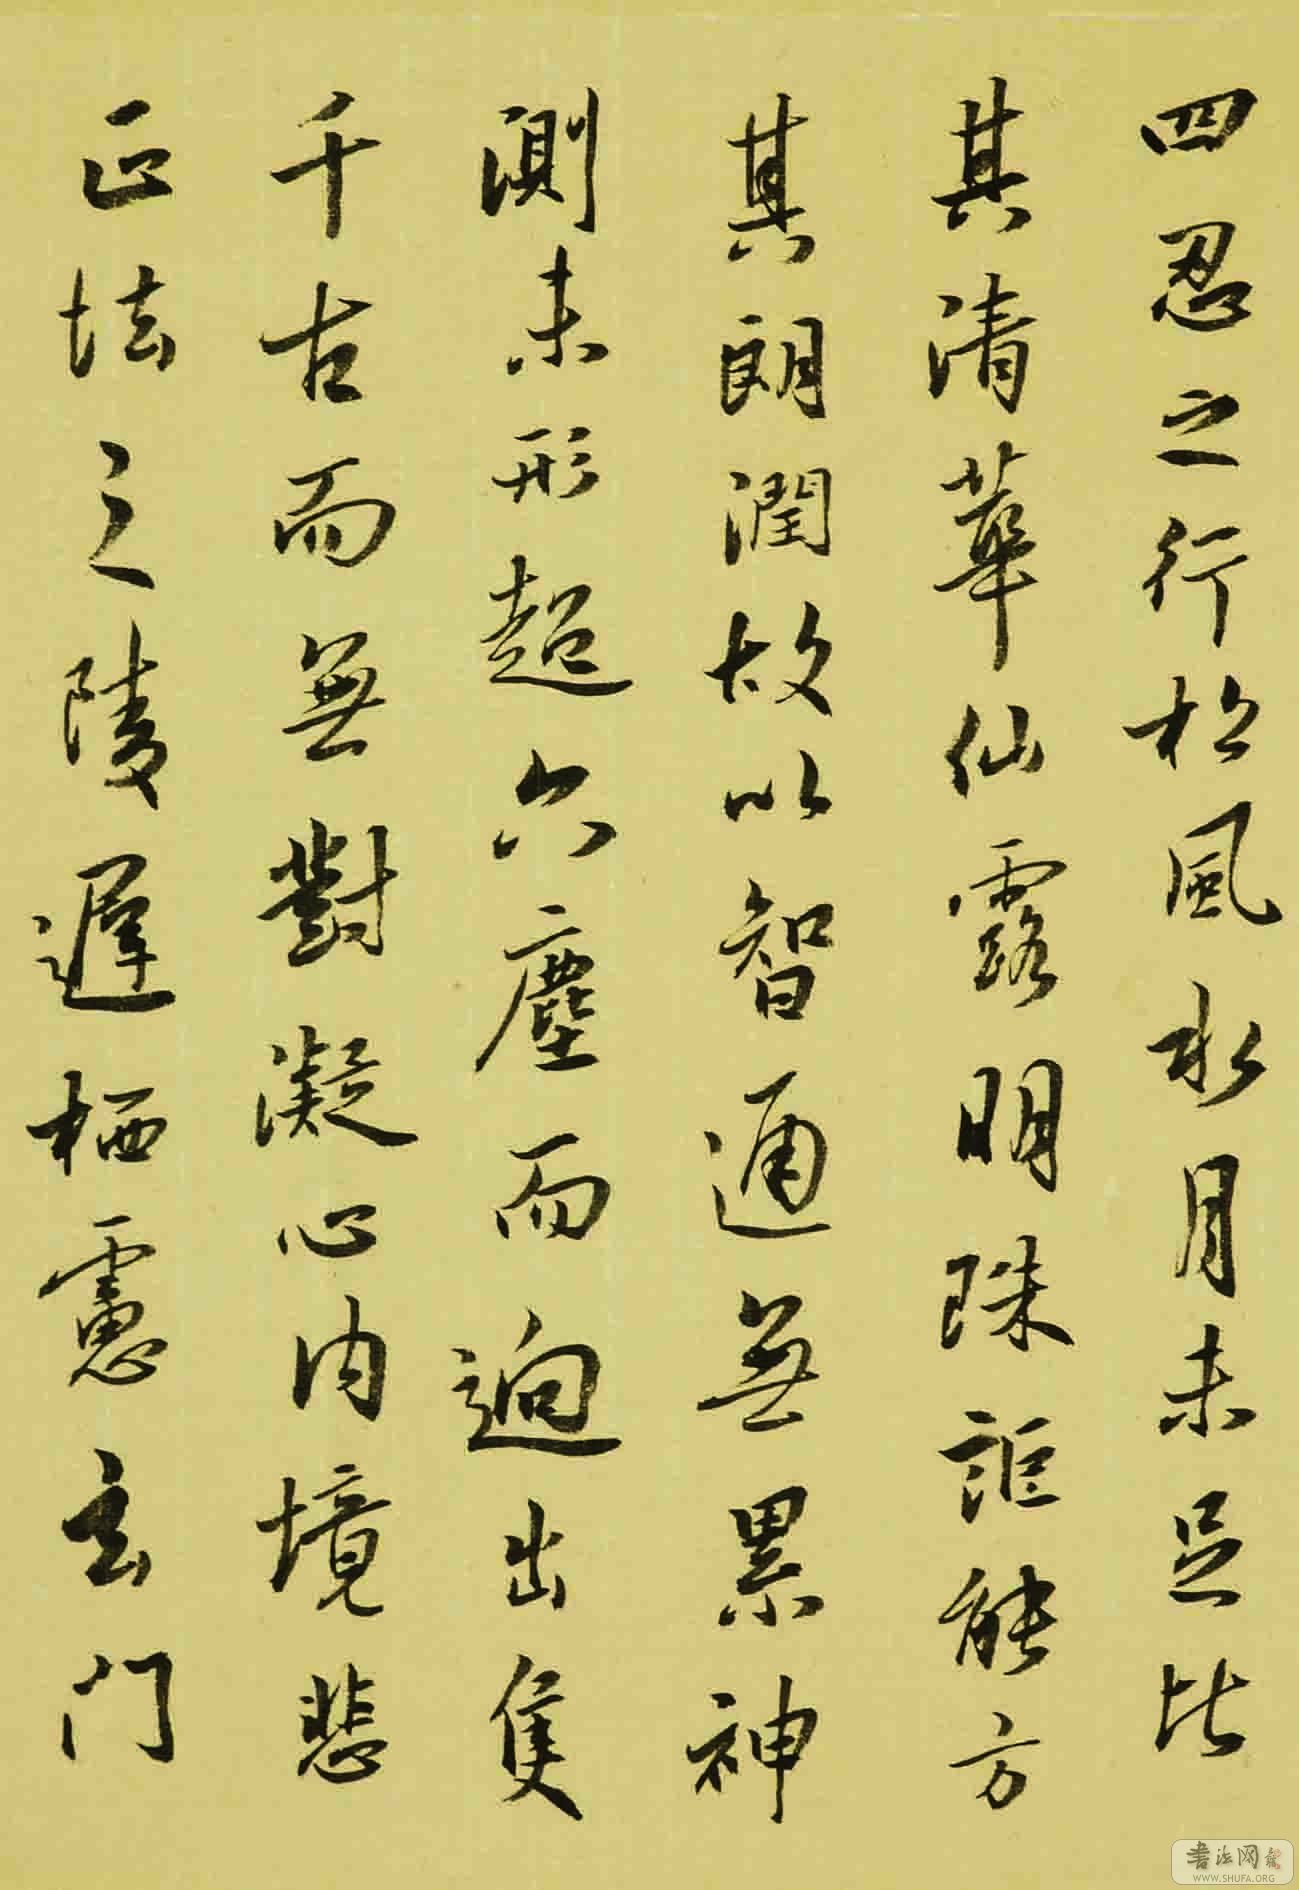 四忍之行松風水月未足比
其清華仙露明珠詎能方
其朗潤故以智通無累神
測未形超六塵而逈出隻
千古而無對凝心内境悲
正法之陵遲栖慮玄門
書法网
WWW.SHUFA.ORG